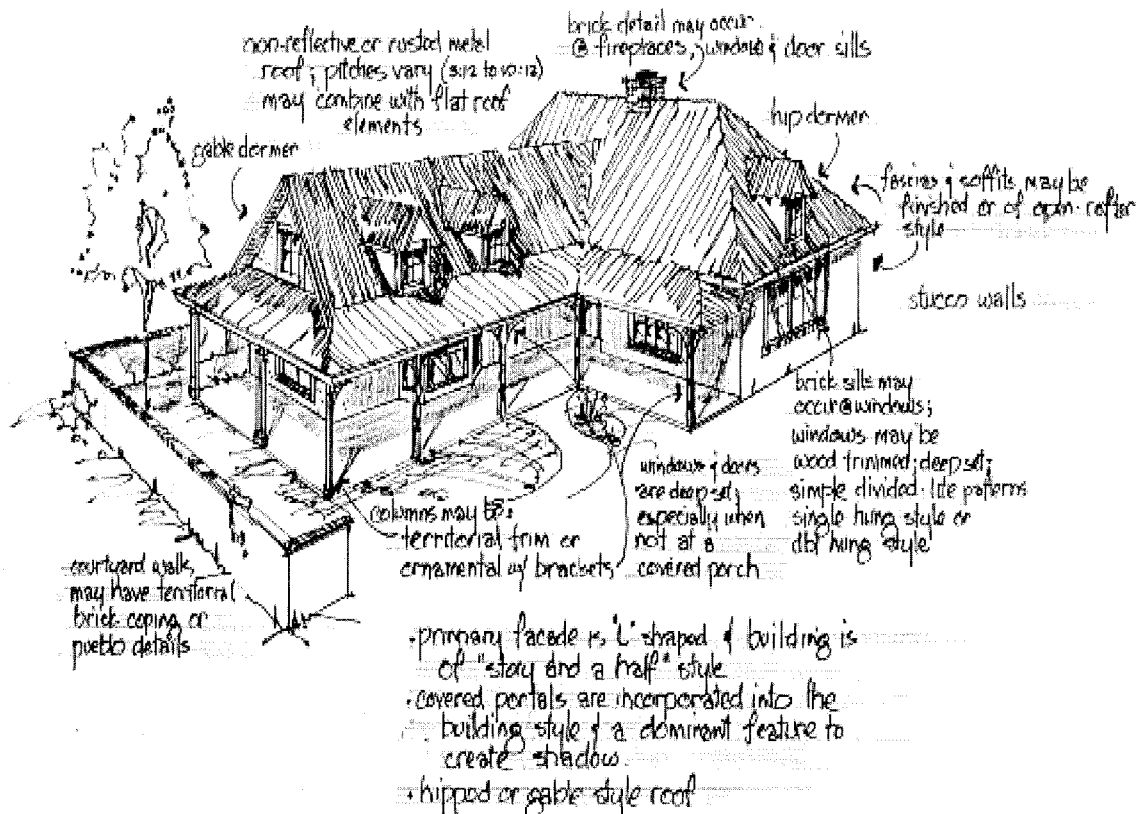 non-reflective or rusted metal
roof; pitches vary (3:12 to 10:12)
may combine with flat roof
elements
brick detail may occur
@ fireplaces, window & door sills
gable dormer
hip dormer
fascias & soffits may be
finished or of open rafter
style
stucco walls
brick sills may
occur @ windows;
windows may be
wood trimmed; deep set;
simple divided lite patterns
single hung style or
dbl hung style
windows & doors
are deep set;
especially when
not at a
covered porch
columns may be:
territorial trim or
ornamental w/ brackets
courtyard walls,
may have territorial
brick coping or
pueblo details
• primary facade is "L" shaped & building is
of "story and a half" style
• covered portals are incorporated into the
building style & a dominant feature to
create shadow.
• hipped or gable style roof